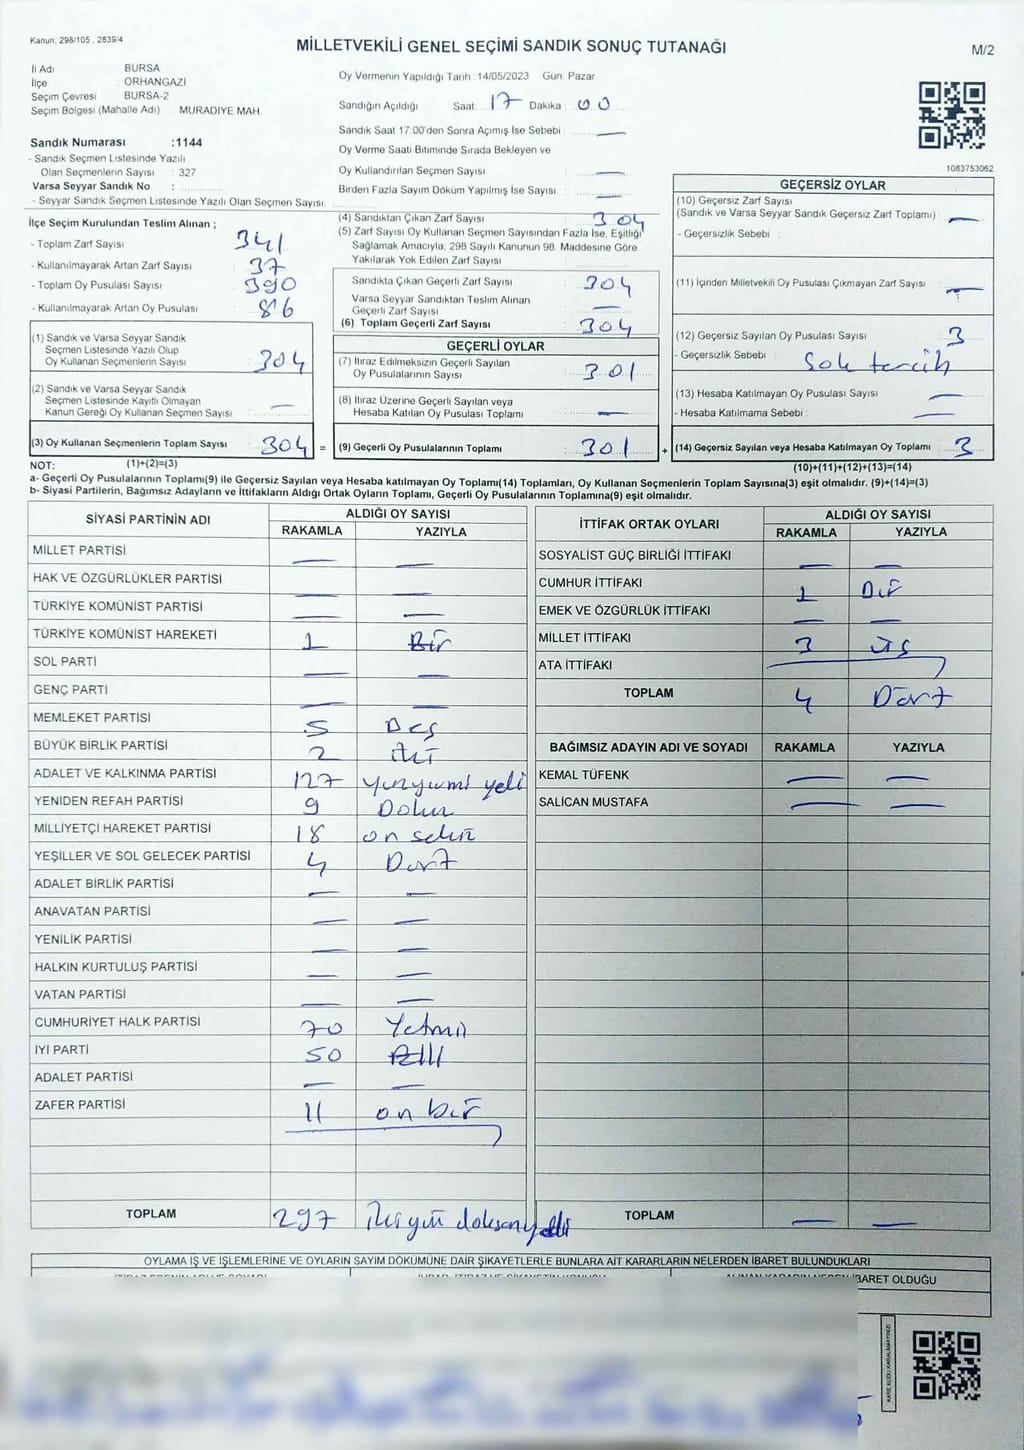 Kanun; 298/105 , 2839/4
MİLLETVEKİLİ GENEL SEÇİMİ SANDIK SONUÇ TUTANAĞI
M/2
İl Adı : BURSA
İlçe : ORHANGAZİ
Seçim Çevresi : BURSA-2
Seçim Bölgesi (Mahalle Adı) : MURADİYE MAH.
Oy Vermenin Yapıldığı Tarih :14/05/2023 Gün: Pazar
Sandığın Açıldığı Saat: 17 Dakika : 00
Sandık Saat 17:00'den Sonra Açımış İse Sebebi : —
Oy Verme Saati Bitiminde Sırada Bekleyen ve
Oy Kullandırılan Seçmen Sayısı : —
Birden Fazla Sayım Döküm Yapılmış İse Sayısı : —
Sandık Numarası :1144
- Sandık Seçmen Listesinde Yazılı
Olan Seçmenlerin Sayısı : 327
Varsa Seyyar Sandık No :
- Seyyar Sandık Seçmen Listesinde Yazılı Olan Seçmen Sayısı:
1083753062
İlçe Seçim Kurulundan Teslim Alınan ;
- Toplam Zarf Sayısı : 341
- Kullanılmayarak Artan Zarf Sayısı : 37
- Toplam Oy Pusulası Sayısı : 390
- Kullanılmayarak Artan Oy Pusulası : 86
(1) Sandık ve Varsa Seyyar Sandık
Seçmen Listesinde Yazılı Olup
Oy Kullanan Seçmenlerin Sayısı : 304
(2) Sandık ve Varsa Seyyar Sandık
Seçmen Listesinde Kayıtlı Olmayan
Kanun Gereği Oy Kullanan Seçmen Sayısı : —
(3) Oy Kullanan Seçmenlerin Toplam Sayısı : 304 =
(4) Sandıktan Çıkan Zarf Sayısı : 304
(5) Zarf Sayısı Oy Kullanan Seçmen Sayısından Fazla İse, Eşitliği
Sağlamak Amacıyla, 298 Sayılı Kanunun 98. Maddesine Göre
Yakılarak Yok Edilen Zarf Sayısı :
Sandıkta Çıkan Geçerli Zarf Sayısı : 304
Varsa Seyyar Sandıktan Teslim Alınan
Geçerli Zarf Sayısı : —
(6) Toplam Geçerli Zarf Sayısı : 304
GEÇERLİ OYLAR
(7) İtiraz Edilmeksizin Geçerli Sayılan
Oy Pusulalarının Sayısı : 301
(8) İtiraz Üzerine Geçerli Sayılan veya
Hesaba Katılan Oy Pusulası Toplamı : —
(9) Geçerli Oy Pusulalarının Toplamı : 301 +
GEÇERSİZ OYLAR
(10) Geçersiz Zarf Sayısı
(Sandık ve Varsa Seyyar Sandık Geçersiz Zarf Toplamı) : —
- Geçersizlik Sebebi :
(11) İçinden Milletvekili Oy Pusulası Çıkmayan Zarf Sayısı : —
(12) Geçersiz Sayılan Oy Pusulası Sayısı : 3
- Geçersizlik Sebebi :
(13) Hesaba Katılmayan Oy Pusulası Sayısı : —
- Hesaba Katılmama Sebebi : —
(14) Geçersiz Sayılan veya Hesaba Katılmayan Oy Toplamı : 3
NOT: (1)+(2)=(3)
(10)+(11)+(12)+(13)=(14)
a- Geçerli Oy Pusulalarının Toplamı(9) ile Geçersiz Sayılan veya Hesaba katılmayan Oy Toplamı(14) Toplamları, Oy Kullanan Seçmenlerin Toplam Sayısına(3) eşit olmalıdır. (9)+(14)=(3)
b- Siyasi Partilerin, Bağımsız Adayların ve İttifakların Aldığı Ortak Oyların Toplamı, Geçerli Oy Pusulalarının Toplamına(9) eşit olmalıdır.
SİYASİ PARTİNİN ADI ALDIĞI OY SAYISI
RAKAMLA YAZIYLA
MİLLET PARTİSİ — —
HAK VE ÖZGÜRLÜKLER PARTİSİ — —
TÜRKİYE KOMÜNİST PARTİSİ — —
TÜRKİYE KOMÜNİST HAREKETİ 1 Bir
SOL PARTİ — —
GENÇ PARTİ — —
MEMLEKET PARTİSİ 5 Beş
BÜYÜK BİRLİK PARTİSİ 2 iki
ADALET VE KALKINMA PARTİSİ 127 yüzyirmi yedi
YENİDEN REFAH PARTİSİ 9 Dokuz
MİLLİYETÇİ HAREKET PARTİSİ 18 on sekiz
YEŞİLLER VE SOL GELECEK PARTİSİ 4 Dört
ADALET BİRLİK PARTİSİ — —
ANAVATAN PARTİSİ — —
YENİLİK PARTİSİ — —
HALKIN KURTULUŞ PARTİSİ — —
VATAN PARTİSİ — —
CUMHURİYET HALK PARTİSİ 70 Yetmiş
İYİ PARTİ 50 Elli
ADALET PARTİSİ — —
ZAFER PARTİSİ 11 on bir
TOPLAM 297 ikiyüz doksanyedi
İTTİFAK ORTAK OYLARI ALDIĞI OY SAYISI
RAKAMLA YAZIYLA
SOSYALİST GÜÇ BİRLİĞİ İTTİFAKI — —
CUMHUR İTTİFAKI 1 Bir
EMEK VE ÖZGÜRLÜK İTTİFAKI — —
MİLLET İTTİFAKI 3 üç
ATA İTTİFAKI
TOPLAM 4 Dört
BAĞIMSIZ ADAYIN ADI VE SOYADI RAKAMLA YAZIYLA
KEMAL TÜFENK — —
SALİCAN MUSTAFA — —
TOPLAM — —
OYLAMA İŞ VE İŞLEMLERİNE VE OYLARIN SAYIM DÖKÜMÜNE DAİR ŞİKAYETLERLE BUNLARA AİT KARARLARIN NELERDEN İBARET BULUNDUKLARI
İBARET OLDUĞU
KARE KODU KARALAMAYINIZ!